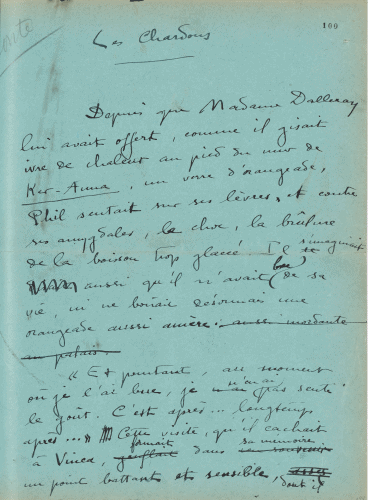 100
Les Chardons
Depuis que Madame Dalleray
lui avait offert, comme il gisait
ivre de chaleur au pied du mur de
Ker-Anna, un verre d'orangeade,
Phil sentait sur ses lèvres, et contre
ses amygdales, le choc, la brûlure
de la boisson trop glacée Il s'imaginait
aussi qu'il n'avait bu de sa
vie, ni ne boirait désormais une
orangeade aussi amère. aussi mordante
au palais.
"Et pourtant, au moment
où je l'ai bue, je n'ai pas senti
le goût. C'est après... longtemps
après..." Cette visite, qu'il cachait
à Vinca, formait dans sa mémoire
un point battant et sensible, dont il